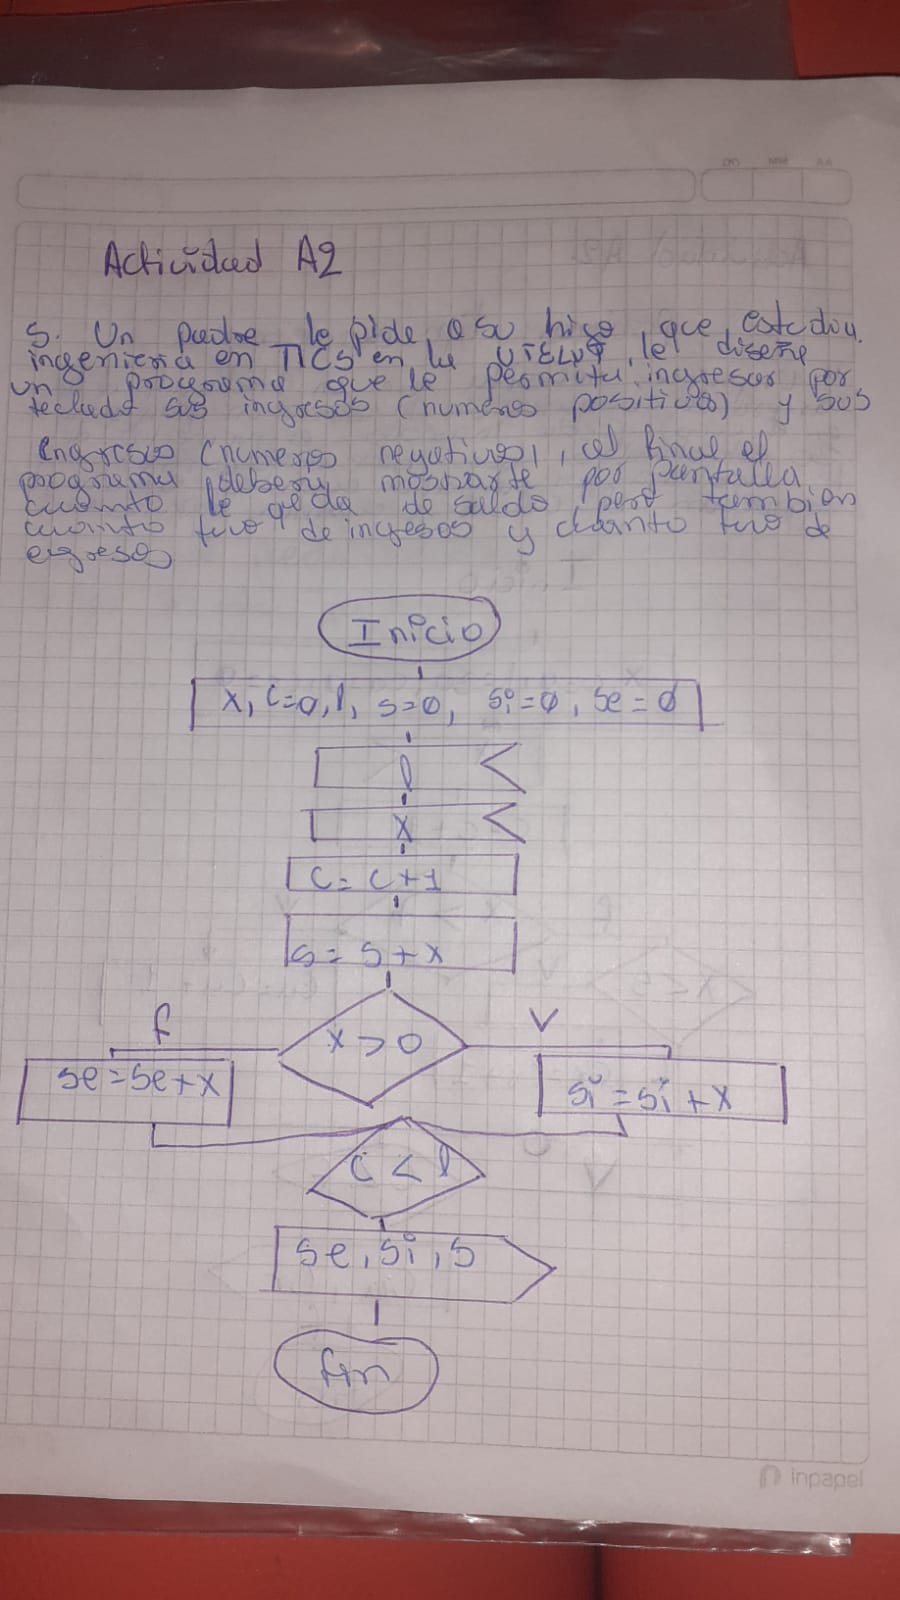 DD MM AA
Actividad A2
5. Un padre le pide a su hijo, que estudia
ingenieria en TICS en la UTELVT, le diseñe
un programa que le permita ingresar por
teclado sus ingresos (numeros positivos) y sus
Engresos (numeros negativos), al final el
programa debera mostrarle por pantalla
cuanto le qeda de saldo, pero tambien
cuanto tuvo de ingresos y cuanto tuvo de
egresos
Inicio
x, c=0, l, s=0, si=0, se=0
l
x
c = c+1
s = s+x
f x > 0 V
se = se+x si = si+x
c < l
se, si, s
fin
inpapel